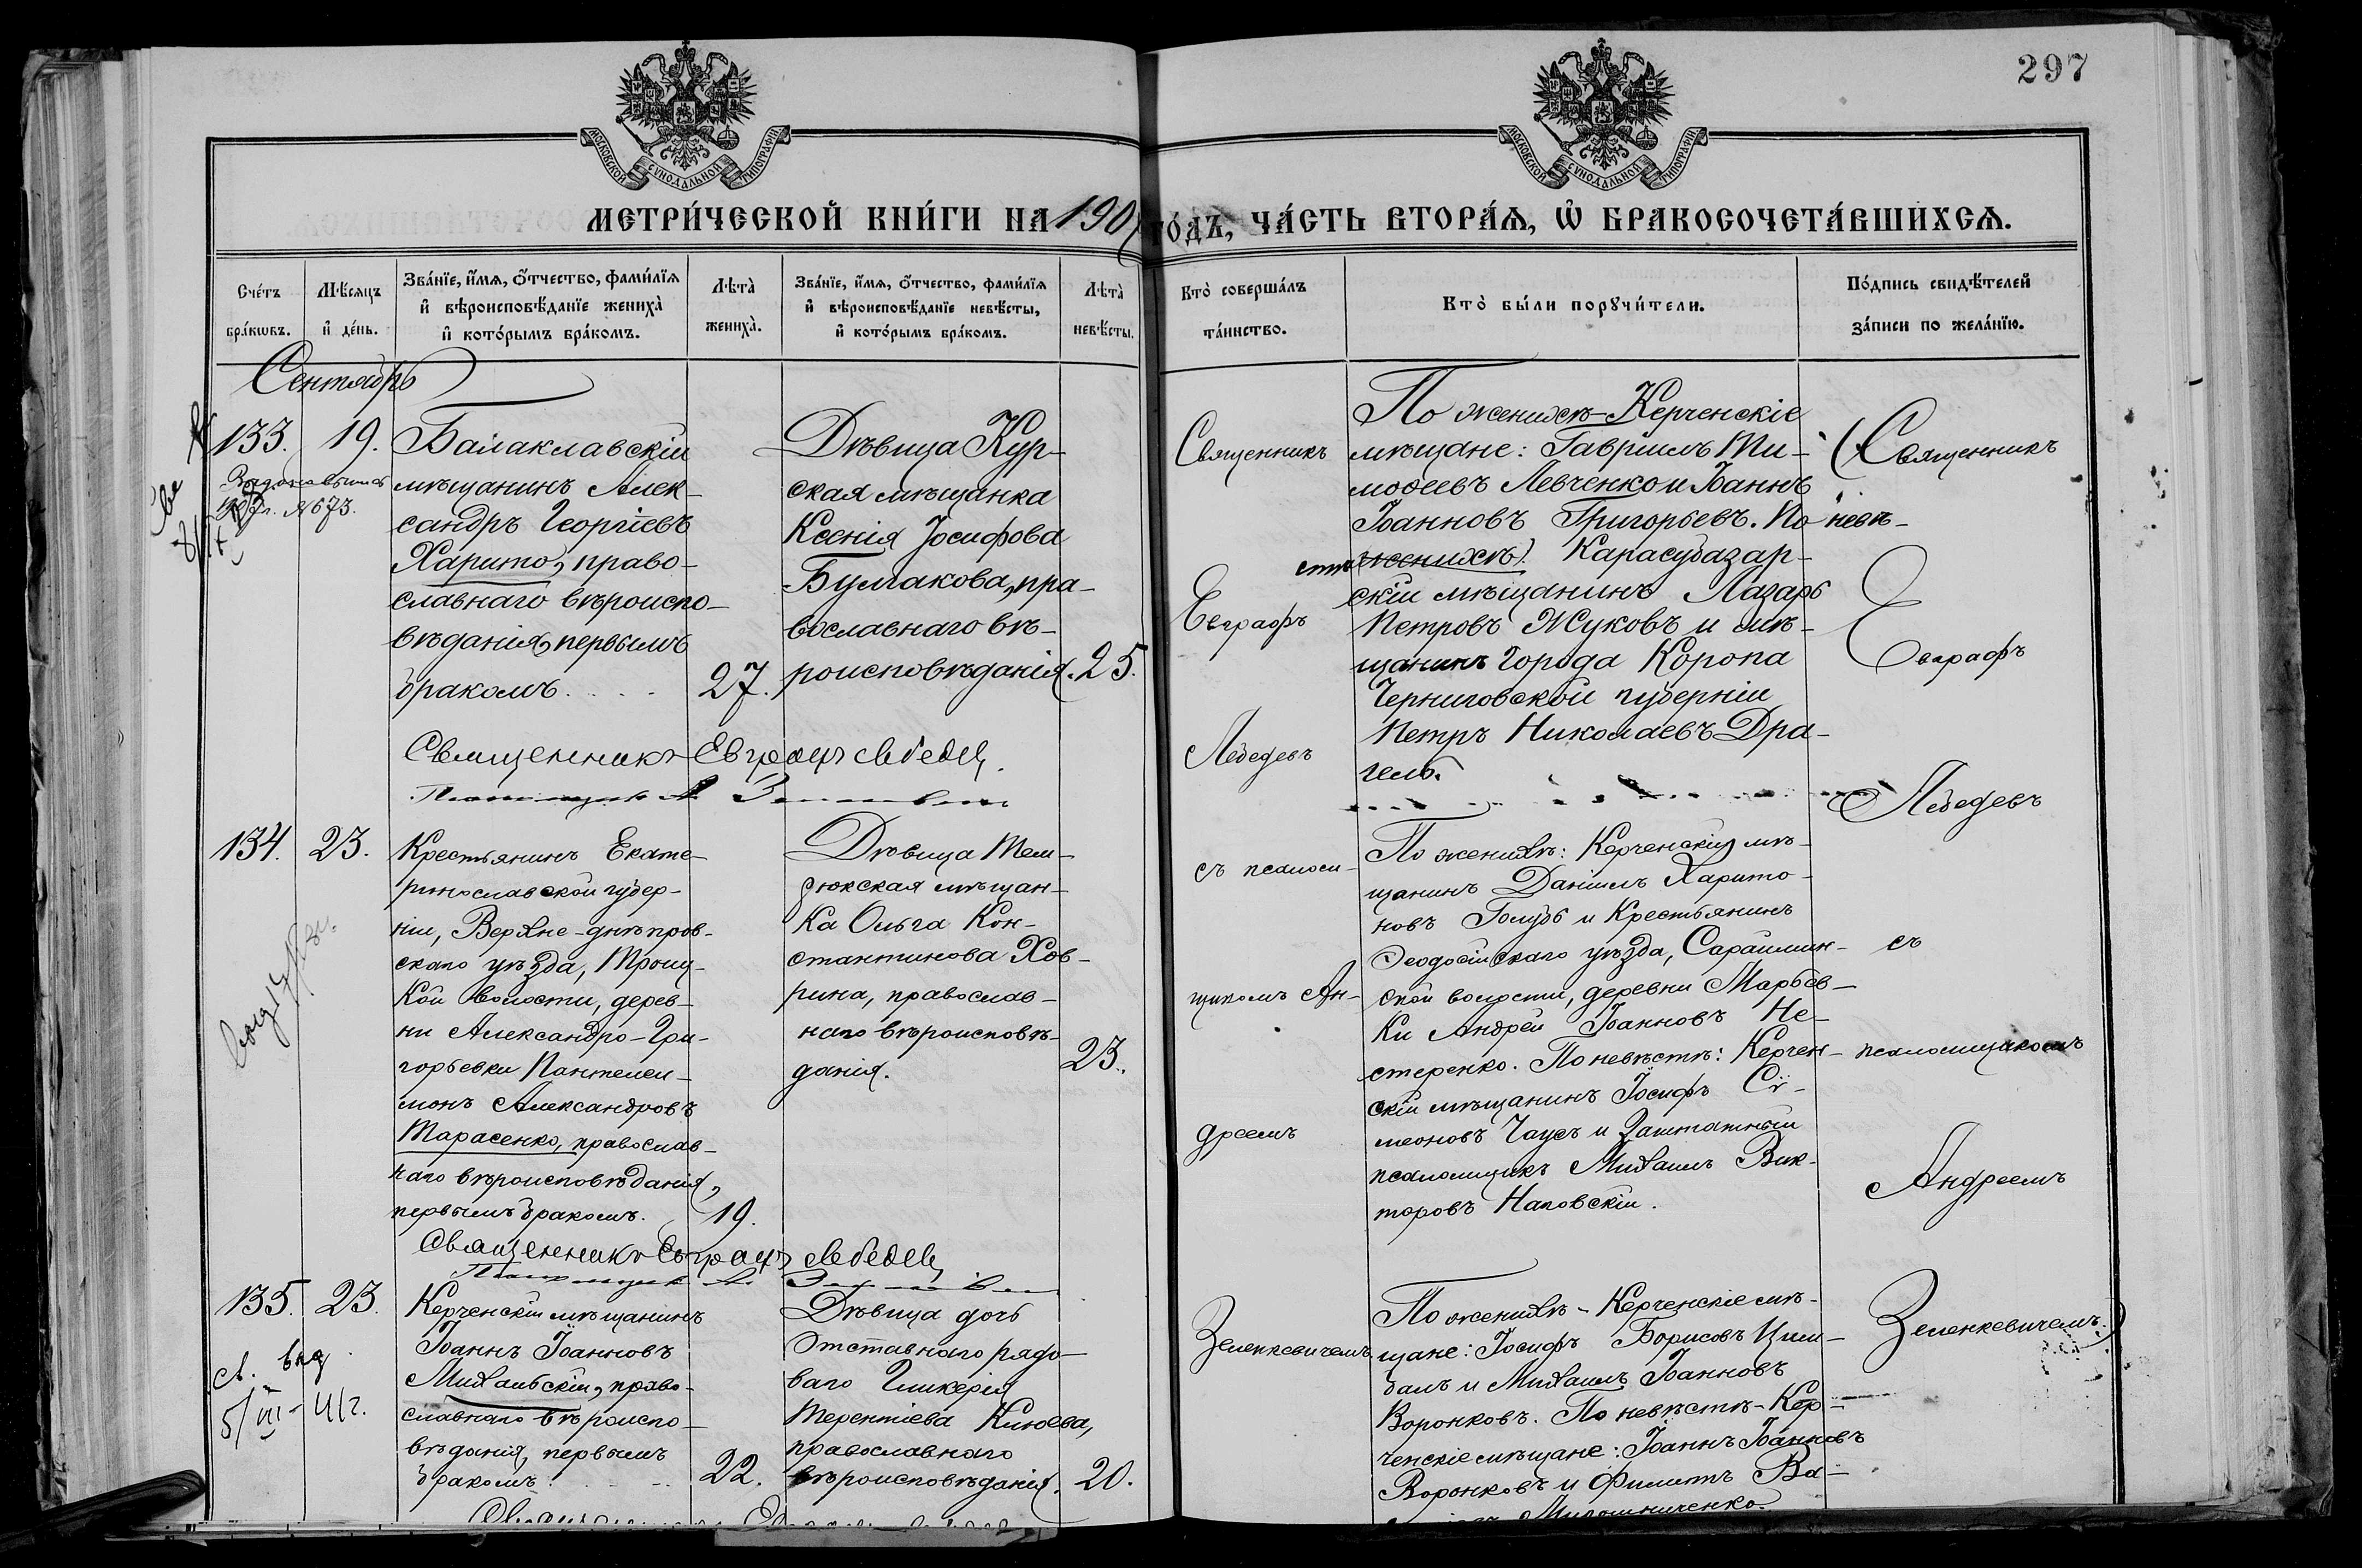 297
МОСКОВСКОЙ СѴНОДАЛЬНОЙ ТИПОГРАФІИ
МОСКОВСКОЙ СѴНОДАЛЬНОЙ ТИПОГРАФІИ
МЕТРИ́ЧЕСКОЙ КНИ́ГИ НА 190 ГО́ДЪ, ЧА́СТЬ ВТОРА́Ѧ, Ѡ҆ БРАКОСОЧЕТА́ВШИХСѦ.
Сче́тъ
бра́кѡвъ.
Мѣ́сяцъ
и҆ де́нь.
Зва́нїе, и҆́мѧ, ѻ҆́тчество, фами́лїѧ
и҆ вѣроисповѣ́данїе жениха̀
и҆ кото́рымъ бра́комъ.
Лѣ́та̀
жениха̀.
Зва́нїе, и҆́мѧ, ѻ҆́тчество, фами́лїѧ
и҆ вѣроисповѣ́данїе невѣ́сты,
и҆ кото́рымъ бра́комъ.
Лѣ́та̀
невѣ́сты.
Кто̀ соверша́лъ
та́инство.
Кто̀ бы́ли порꙋчи́тели.
По́дпись свидѣ́телей
за́писи по жела́нїю.
Сентябрь
133.
19.
№ 673.
Балаклавскій
мѣщанинъ Алек-
сандръ Георгіевъ
Харито, право-
славнаго вѣроиспо-
вѣданія, первымъ
бракомъ.
27.
Дѣвица Кур-
ская мѣщанка
Ксенія Іосифова
Булгакова, пра-
вославнаго вѣ-
роисповѣданія.
25.
Священникъ Евграфъ Лебедевъ.
Священникъ
Евграфъ
Лебедевъ
съ псалом-
щикомъ Ан-
дреемъ
Зеленкевичемъ
По женихѣ - Керченскіе
мѣщане: Гавріилъ Ти-
моѳеевъ Левченко и Іоаннъ
Іоанновъ Григорьевъ. По невѣ-
стѣ (женихѣ) Карасубазар-
скій мѣщанинъ Лазарь
Петровъ Жуковъ и мѣ-
щанинъ города Коропа
Черниговской губерніи
Петръ Николаевъ Дра-
гель.
Священникъ
Евграфъ
Лебедевъ
съ
псаломщикомъ
Андреемъ
Зеленкевичемъ.
134.
23.
Крестьянинъ Екате-
ринославской губер-
ніи, Верхне-днѣпров-
скаго уѣзда, Троиц-
кой волости, дерев-
ни Александро-Гри-
горьевки Пантелеи-
монъ Александровъ
Тарасенко, православ-
наго вѣроисповѣданія,
первымъ бракомъ.
19.
Дѣвица Тем-
рюкская мѣщан-
ка Ольга Кон-
стантинова Хов-
рина, православ-
наго вѣроисповѣ-
данія.
23.
Священникъ Евграфъ Лебедевъ
По женихѣ: Керченскій мѣ-
щанинъ Даніилъ Харито-
новъ Голубь и Крестьянинъ
Ѳеодосійскаго уѣзда, Сараймин-
ской волости, деревни Марьев-
ки Андрей Іоанновъ Не-
стеренко. По невѣстѣ: Керчен-
скій мѣщанинъ Іосифъ Си-
меоновъ Чаусъ и Заштатный
псаломщикъ Михаилъ Вик-
торовъ Наповскій.
135.
23.
5/III-41г.
Керченскій мѣщанинъ
Іоаннъ Іоанновъ
Михальскій, право-
славнаго вѣроиспо-
вѣданія, первымъ
бракомъ.
22.
Дѣвица дочь
Отставнаго рядо-
ваго Гликерія
Терентіева Клюева,
православнаго
вѣроисповѣданія.
20.
По женихѣ - Керченскіе мѣ-
щане: Іосифъ Борисовъ Цим-
балъ и Михаилъ Іоанновъ
Воронковъ. По невѣстѣ - Кер-
ченскіе мѣщане: Іоаннъ Іоанновъ
Воронковъ и Филиппъ Ва-
Мирошниченко.